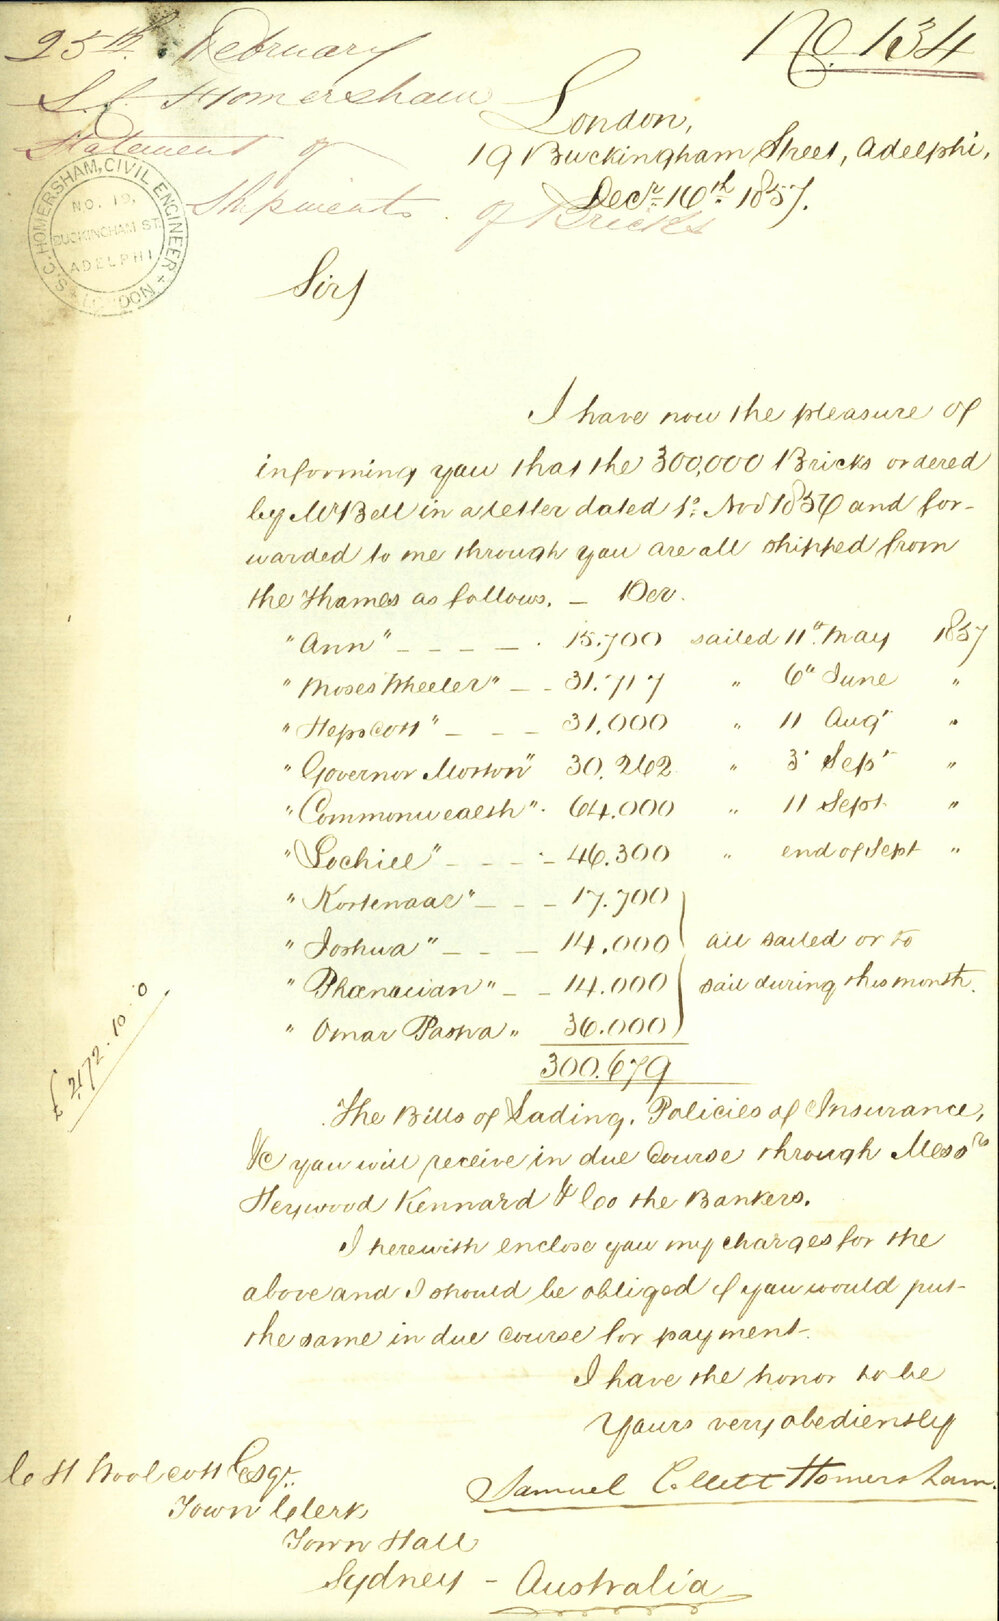 25th. February
No. 134
S. C. Homersham
London,
Statement of
19 Buckingham Street, Adelphi,
Shipments of Bricks
Decr. 16th. 1857.
S. C. HOMERSHAM, CIVIL ENGINEER
NO. 19,
BUCKINGHAM ST.
ADELPHI
LONDON
Sir,
I have now the pleasure of
informing you that the 300,000 Bricks ordered
by Mr Bell in a letter dated 1st. Novr 1856 and for-
warded to me through you are all shipped from
the Thames as follows. — Per.
"Ann" — — — — . 15.700 sailed 11th May 1857
"Moses Wheeler" — — 31.717 " 6th June "
"Hepscott" — — — 31.000 " 11 Augt "
"Governor Morton" 30.262 " 3 Sept "
"Commonwealth". 64.000 " 11 Sept "
"Lochiel" — — — — 46.300 " end of Sept "
"Kortenaar" — — — 17.700
"Joshua" — — — 14.000 all sailed or to
"Phœnacian" — — 14.000 sail during this month.
"Omar Pasha" 36.000
300.679
£2172.10.0
The Bills of Lading, Policies of Insurance,
&c you will receive in due course through Messrs
Heywood Kennard & Co the Bankers.
I herewith enclose you my charges for the
above and I should be obliged if you would put
the same in due course for payment.
I have the honor to be
Yours very obediently
Samuel Collett Homersham.
C H Woolcott Esqr.
Town Clerk
Town Hall
Sydney – Australia